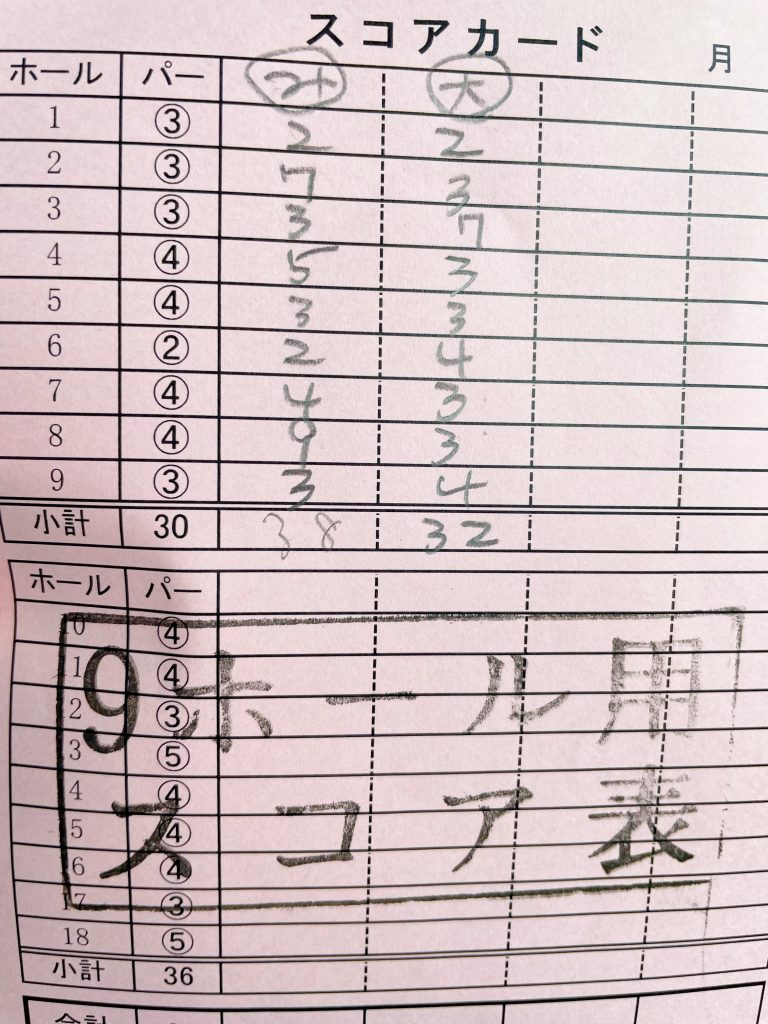 スコアカード
月
ホール パー み 大
1 ③ 2 2
2 ③ 7 3
3 ③ 3 7
4 ④ 5 3
5 ④ 3 3
6 ② 2 4
7 ④ 4 3
8 ④ 9 3
9 ③ 3 4
小計 30 38 32
ホール パー
0 ④
1 ④
2 ③
3 ⑤
4 ④
5 ④
6 ④
17 ③
18 ⑤
小計 36
9ホール用
スコア表
合計